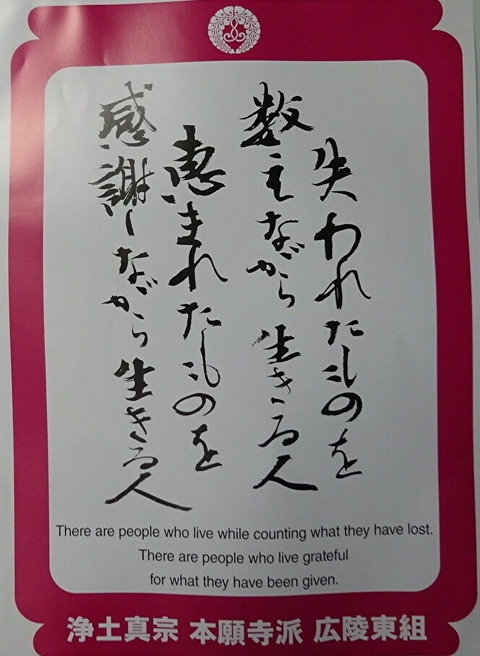 失われたものを
数えながら生きる人
恵まれたものを
感謝しながら生きる人
There are people who live while counting what they have lost.
There are people who live grateful
for what they have been given.
浄土真宗 本願寺派 広陵東組